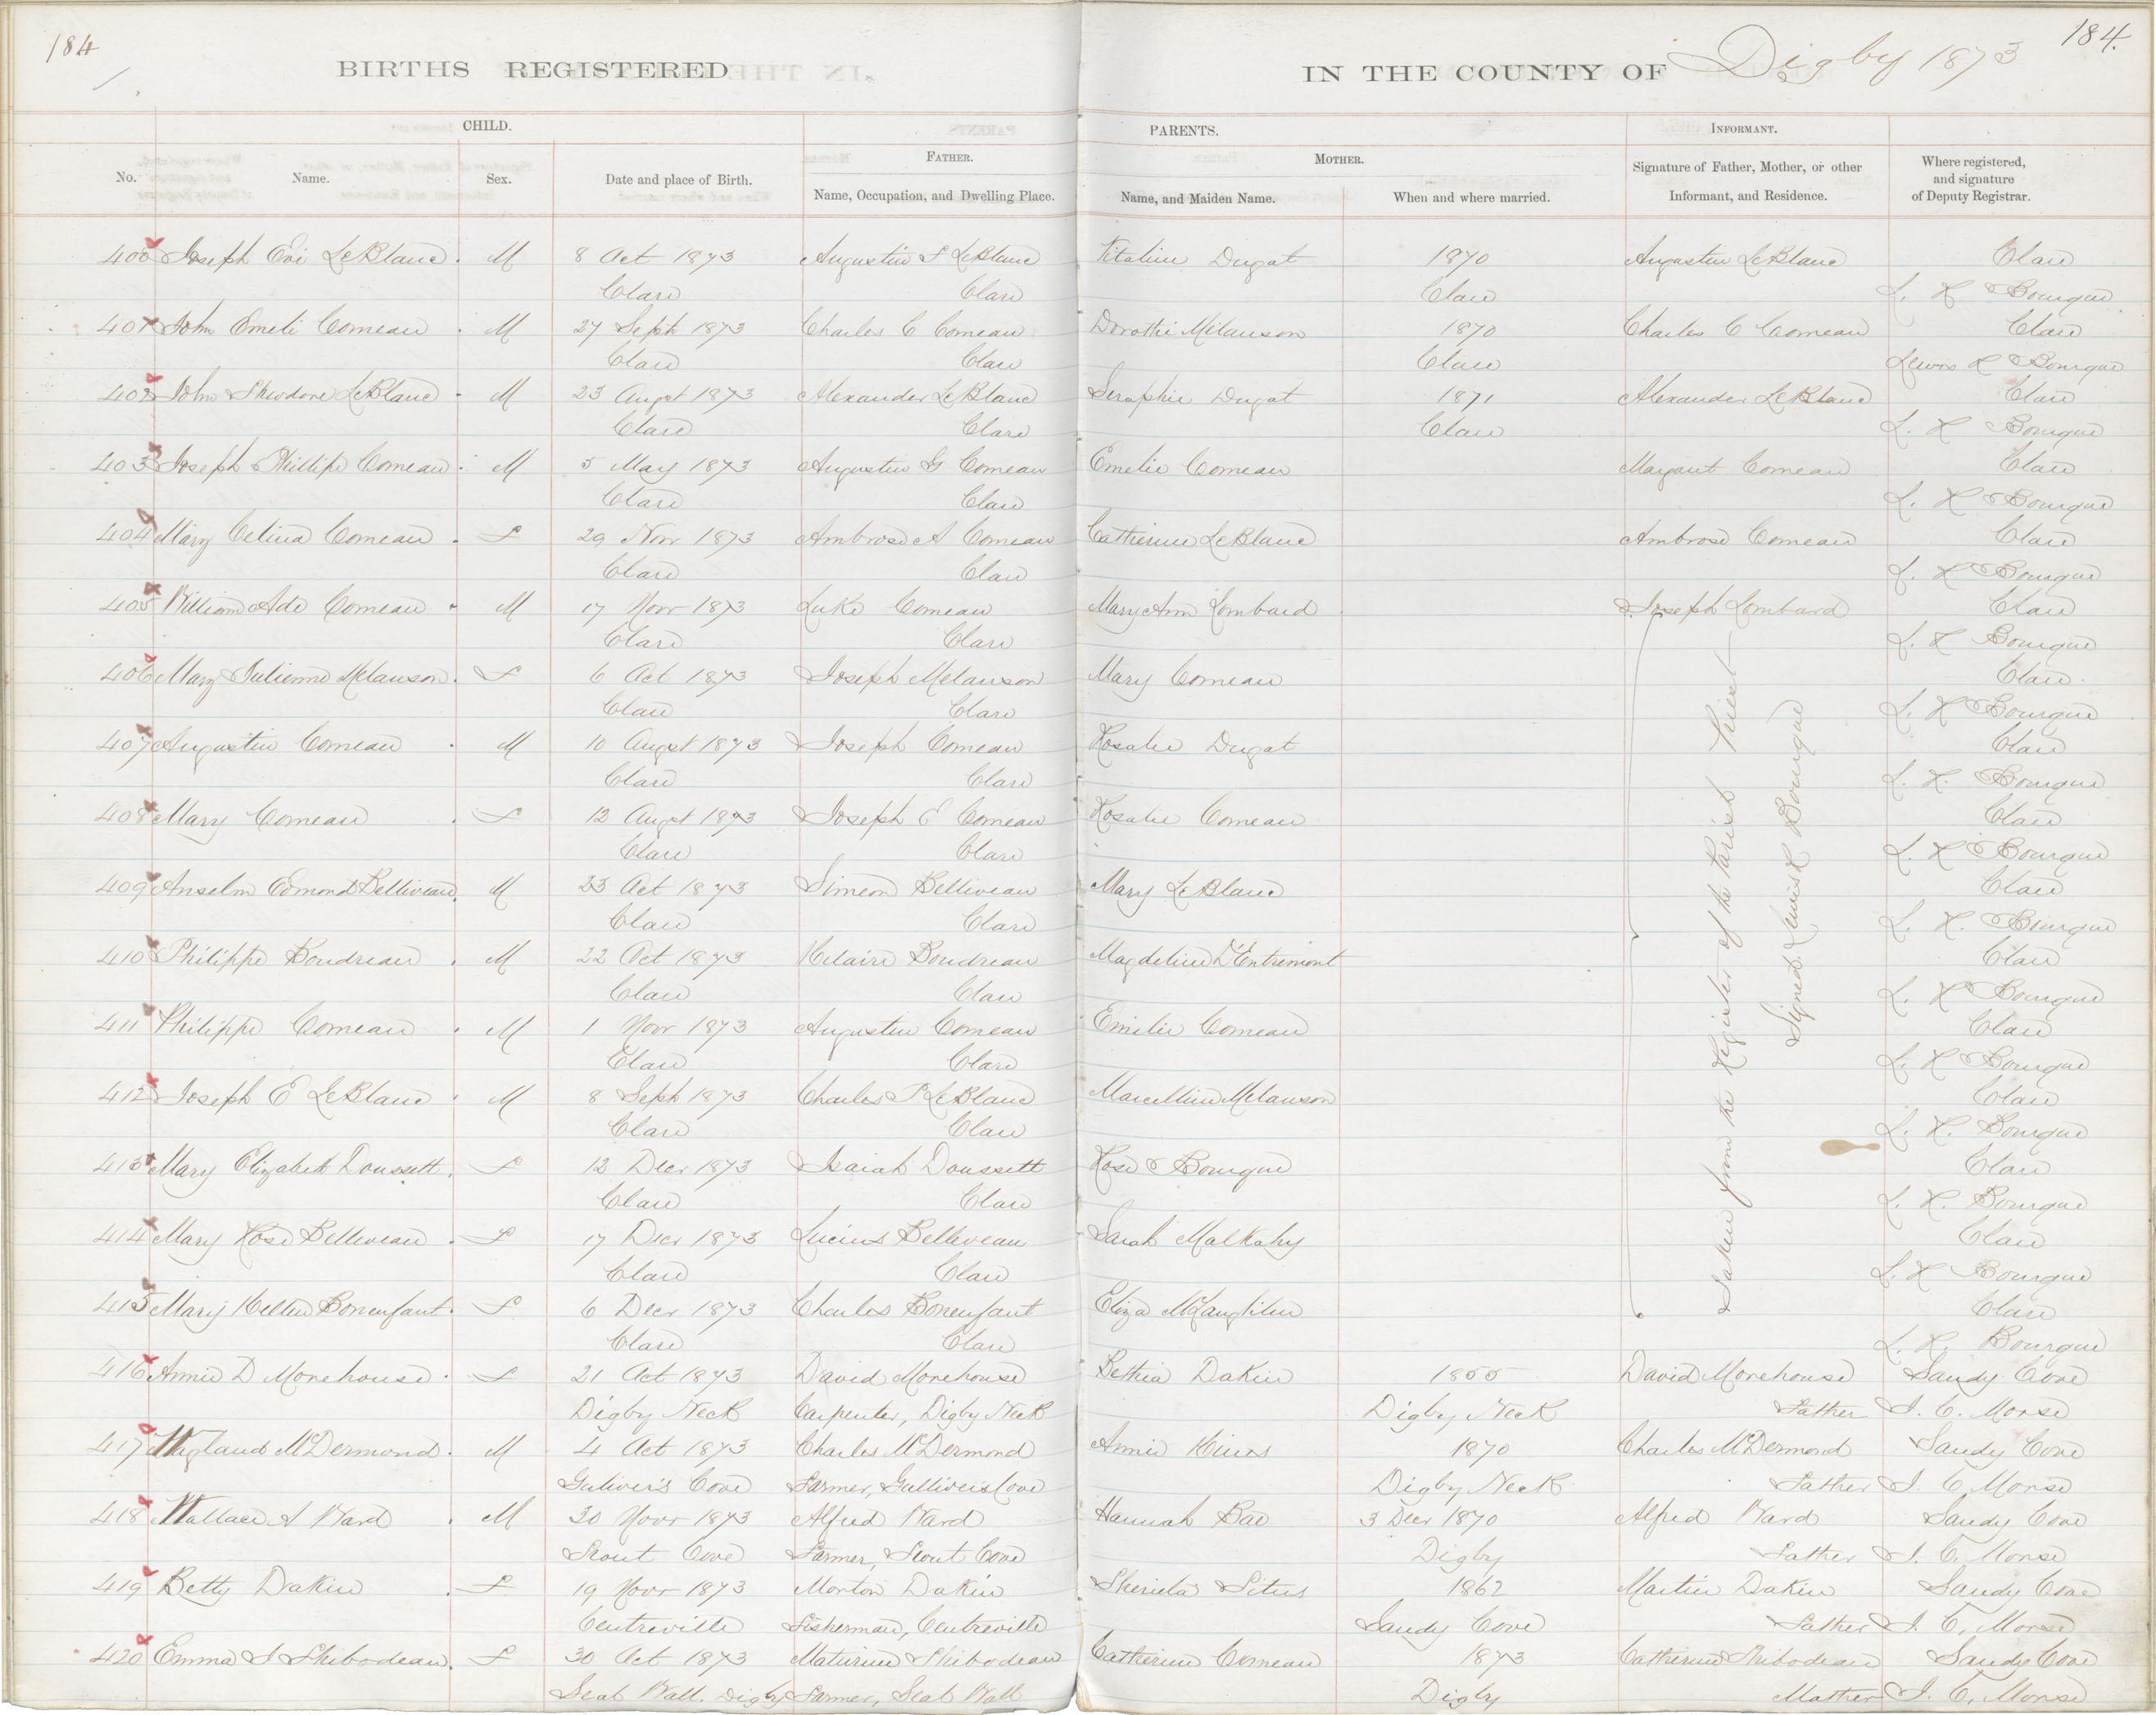 184
184.
BIRTHS REGISTERED IN THE COUNTY OF Digby 1873
CHILD. PARENTS. INFORMANT.
FATHER. MOTHER.
No. Name. Sex. Date and place of Birth. Name, Occupation, and Dwelling Place. Name, and Maiden Name. When and where married. Signature of Father, Mother, or other Informant, and Residence. Where registered, and signature of Deputy Registrar.
400 Joseph Evi LeBlanc M 8 Oct 1873 Augustin LeBlanc Vitaline Dugat 1870 Augustin LeBlanc Clare
Clare Clare Clare L. H Bourque
401 John Emeli Comeau M 27 Sept 1873 Charles C Comeau Dorothi Melanson 1870 Charles C Comeau Clare
Clare Clare Clare Lewis H Bourque
402 John Theodore LeBlanc M 23 Augst 1873 Alexander LeBlanc Seraphie Dugat 1871 Alexander LeBlanc Clare
Clare Clare Clare L. H Bourque
403 Joseph Phillipe Comeau M 5 May 1873 Augustin G Comeau Emelie Comeau Margaret Comeau Clare
Clare Clare L. H Bourque
404 Mary Celina Comeau F 29 Novr 1873 Ambrose A Comeau Catherine LeBlanc Ambrose Comeau Clare
Clare Clare L. H Bourque
405 William Ade Comeau M 17 Novr 1873 Luke Comeau Mary Ann Lombard Joseph Lombard Clare
Clare Clare L. H Bourque
406 Mary Julienne Melanson F 6 Oct 1873 Joseph Melanson Mary Comeau Clare
Clare Clare L. H Bourque
407 Augustin Comeau M 10 Augst 1873 Joseph Comeau Rosalie Dugat Clare
Clare Clare L. H. Bourque
408 Mary Comeau F 12 Augst 1873 Joseph E Comeau Rosalie Comeau Clare
Clare Clare L. H Bourque
409 Anselm Edmond Belliveau M 23 Oct 1873 Simeon Belliveau Mary LeBlanc Clare
Clare Clare L. H. Bourque
410 Philippe Boudreau M 22 Oct 1873 Hilaire Boudreau Magdeline D'Entremont Clare
Clare Clare L. H Bourque
411 Philippe Comeau M 1 Novr 1873 Augustin Comeau Emilie Comeau Clare
Clare Clare L. H Bourque
412 Joseph E LeBlanc M 8 Sept 1873 Charles P LeBlanc Marcelline Melanson Clare
Clare Clare L. H. Bourque
413 Mary Elizabeth Doussett F 12 Decr 1873 Isaiah Doussett Rose Bourque Clare
Clare Clare L. H. Bourque
414 Mary Rose Belliveau F 17 Decr 1873 Lucius Belliveau Sarah Malkahy Clare
Clare Clare L. H Bourque
415 Mary Hellen Bonenfant F 6 Decr 1873 Charles Bonenfant Eliza McLaughlin Clare
Clare Clare L. H. Bourque
Taken from the Register of the Parish Priest
Signed. Lewis H Bourque
416 Annie D Morehouse F 21 Oct 1873 David Morehouse Bethia Dakin 1855 David Morehouse Sandy Cove
Digby Neck Carpenter, Digby Neck Digby Neck Father J. C. Morse
417 McDermond M 4 Oct 1873 Charles McDermond Annie Hines 1870 Charles McDermond Sandy Cove
Guliver's Cove Farmer, Gulliver's Cove Digby Neck Father J. C Morse
418 Wallace A Ward M 30 Novr 1873 Alfred Ward Hannah 3 Decr 1870 Alfred Ward Sandy Cove
Trout Cove Farmer, Trout Cove Digby Father J. C. Morse
419 Betty Dakin F 19 Novr 1873 Morton Dakin Titus 1862 Martin Dakin Sandy Cove
Centreville Fisherman, Centreville Sandy Cove Father J. C. Morse
420 Emma J Thibodeau F 30 Oct 1873 Maturine Thibodeau Catherine Comeau 1873 Catherine Thibodeau Sandy Cove
Seal Wall. Digby Farmer, Seal Wall Digby Mother J. C. Morse